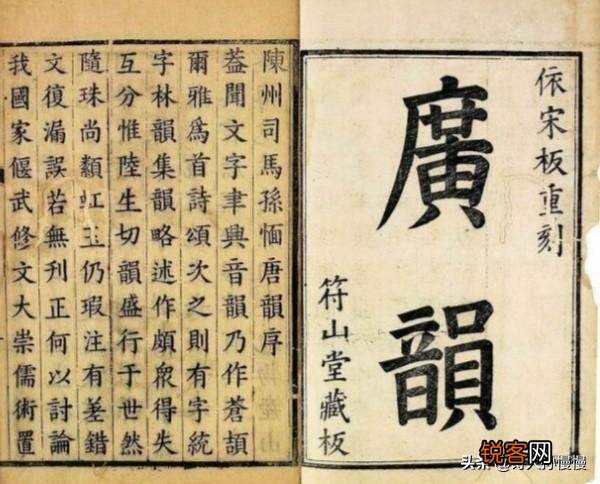 依宋板重刻
廣韻
符山堂藏板
陳州司馬孫愐唐韻序
葢聞文字聿興音韻乃作蒼頡
爾雅爲首詩頌次之則有字統
字林韻集韻略述作頗衆得失
互分惟陸生切韻盛行于世然
隨珠尚纇虹玉仍瑕注有差錯
文復漏誤若無刊正何以討論
我國家偃武修文大崇儒術置
锐客网
头条
慢慢